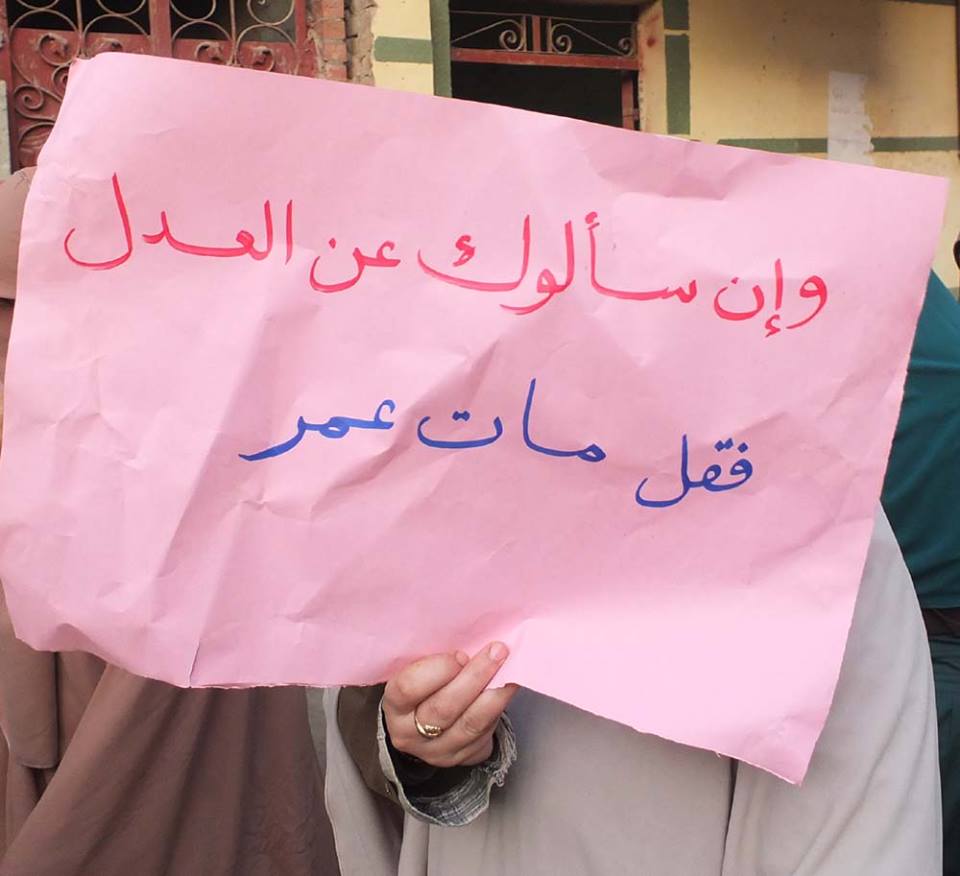 وإن سألوك عن العدل
فقل مات عمر